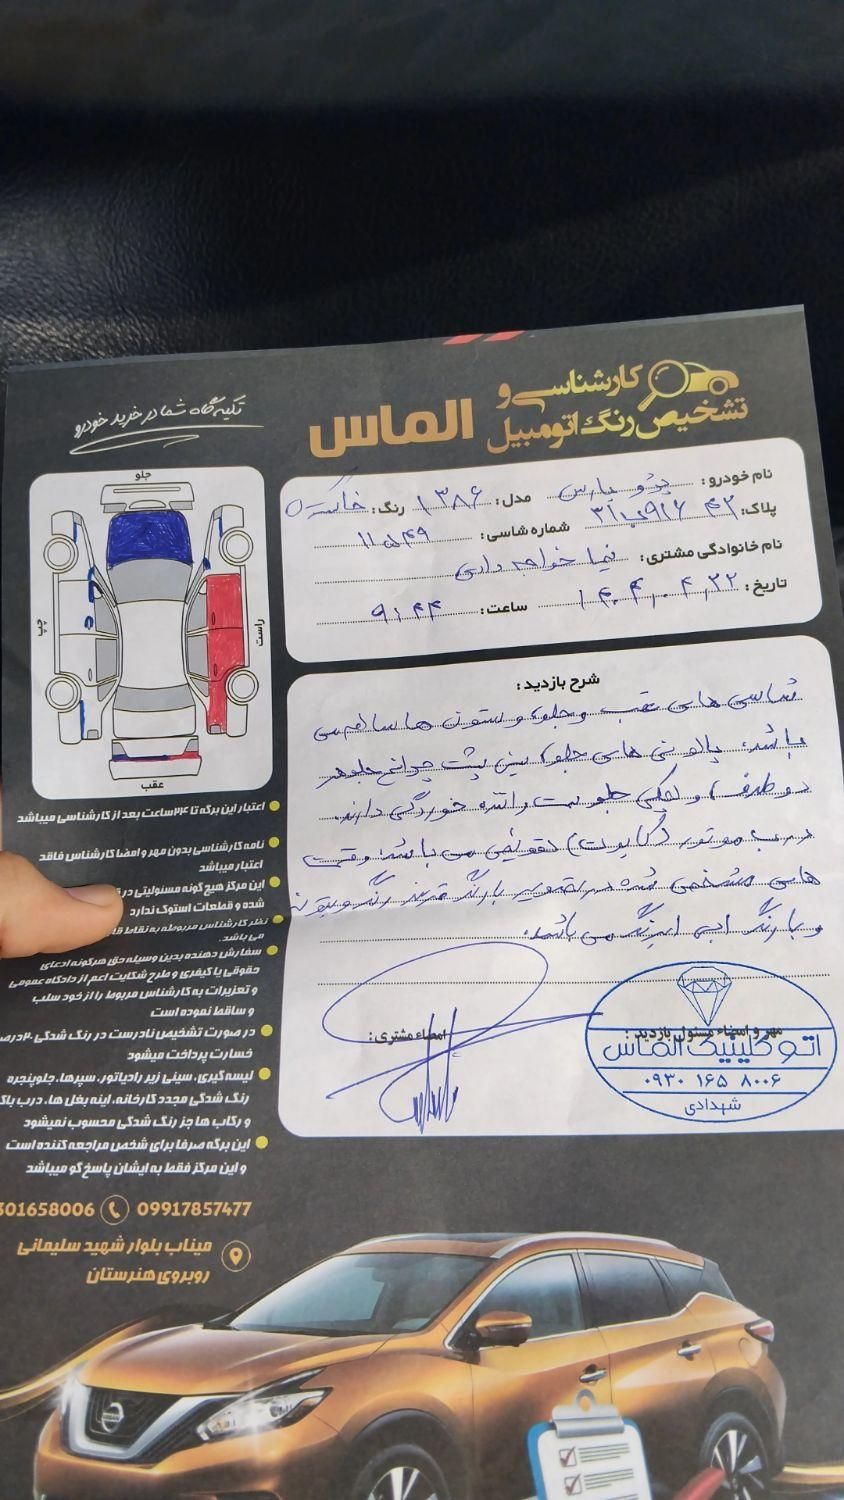 کارشناسی و
تشخیص رنگ اتومبیل الماس
تکیه گاه شما در خرید خودرو
نام خودرو: پژو پارس مدل: ۱۳۸۶ رنگ: خاکستری
پلاک: ۴۲
شماره شاسی: ۱۱۵۴۹
نام خانوادگی مشتری: نیما خواجه دادی
تاریخ: ۱۴۰۴،۰۴،۲۲ ساعت: ۹:۴۴
جلو
چپ
راست
عقب
شرح بازدید:
شاسی های عقب و جلو، و ستون ها سالم می
باشد. پالونی های جلو، سینی پشت چراغ جلو هر
دو طرف، و لچکی جلو سمت راننده خوردگی دارند.
درب موتور (کاپوت) تعویض می باشد. و قسمت
های مشخص شده در تصویر با رنگ قرمز رنگ و بتونه
و با رنگ آبی لیزنگ می باشد.
اعتبار این برگه تا ۲۴ ساعت بعد از کارشناسی میباشد
نامه کارشناسی بدون مهر و امضا کارشناس فاقد
اعتبار میباشد
این مرکز هیچ گونه مسئولیتی در
شده و قطعات استوک ندارد
نظر کارشناس مربوطه به نقاط
می باشد.
سفارش دهنده بدین وسیله حق هرگونه ادعای
حقوقی یا کیفری و طرح شکایت اعم از دادگاه عمومی
و تعزیرات به کارشناس مربوط را از خود سلب
و ساقط نموده است
در صورت تشخیص نادرست در رنگ شدگی
خسارت پرداخت میشود
لیسه گیری، سینی زیر رادیاتور، سپرها، جلوپنجره
رنگ شدگی مجدد کارخانه، اینه بغل ها، درب باک
و رکاب ها جز رنگ شدگی محسوب نمیشود
این برگه صرفا برای شخص مراجعه کننده است
و این مرکز فقط به ایشان پاسخ گو میباشد
امضاء مشتری:
مهر و امضاء مسئول بازدید:
اتو کلینیک الماس
۰۹۳۰ ۱۶۵ ۸۰۰۶
شهدادی
301658006 09917857477
میناب بلوار شهید سلیمانی
روبروی هنرستان